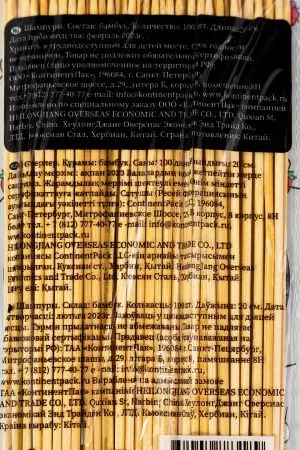 Шампуры. Состав: бамбук. Количество: 100 шт. Длина: 20 см
Дата производства: февраль 2023г.
Хранить в труднодоступном для детей месте. Срок годности
не ограничен. Товар не подлежит обязательному
(уполномоченная на территории РФ):
ООО «КонтинентПак», 196084, г. Санкт-Петербург,
Митрофаньевское шоссе, д.29, литера Б, корпус 8, помещение 8Н
тел. +7 (812) 777-40-77 e-mail: info@kontinentpack.ru,
www.kontinentpack.ru
Изготовлено по специальному заказу ООО «КонтинентПак»
HEILONGJIANG OVERSEAS ECONOMIC AND TRADE CO., LTD, Quxian St,
Harbin, China. ХеулонгДжанг Оверсиас Экономик Энд Трейд Ко.,
ЛТД, Стал, Хербиан, Китай. Страна изготовления: Китай.
Құрамы: бамбук. Саны: 100 дана. 20 см.
мерзімі: ақпан 2023 Балалардың қолы жетпейтін жерде
сақтаңыз. Жарамдылық мерзімі шектеулі емес. Өнім міндетті
сертификаттауға жатпайды. Сатушы (Ресей Федерациясының
аумағындағы уәкілетті тұлға): ContinentPack LLC, 196084,
Санкт-Петербург, Митрофаньевское Шоссе, 29, B, корпус 8, корпус 8Н
бөлме тел. + 7 (812) 777-40-77 e - mail: info@kontinentpack.ru,
www.kontinentpack.ru
HEILONGJIANG OVERSEAS ECONOMIC AND TRADE CO., LTD
компаниясы ContinentPack LLC-нің арнайы тапсырысымен
шығарылған. Куксиан ст., Харбин, Қытай. Heilong Jiang Overseas
Economics and Trade Co., Ltd. Стал, Қытай
елі: Қытай.
Шампуры. Склад: бамбук. Колькасць: 100шт. Даўжыня: 20 см. Дата
вытворчасці: люты 2023г. Захоўваць у цяжкадаступным для дзяцей
месцы. Тэрмін прыдатнасці не абмежаваны. Тавар не падлягае
абавязковай сертыфікацыі. Прадавец (асоба, упаўнаважаная на
тэрыторыі РФ): ТАА «КонтинентПак», 196084, г. Санкт-Пецярбург,
Мітрафаньеўскае шашы, д.29, літара Б, корпус 8, памяшканне 8Н
тэл. +7 (812) 777-40-77 e-mail: info@kontinentpack.ru,
www.kontinentpack.ru Выраблена па адмысловай замове
ТАА «КонтинентПак» HEILONGJIANG OVERSEAS ECONOMIC
AND TRADE CO., LTD, Quxian St, Harbin, China. ХеулонгДжанг Оверсиас
Эканомік Энд Трэйдэн Ко., ЛТД, Кьюксиан Ст, Хербиан, Кітай.
Краіна вырабу: Кітай.